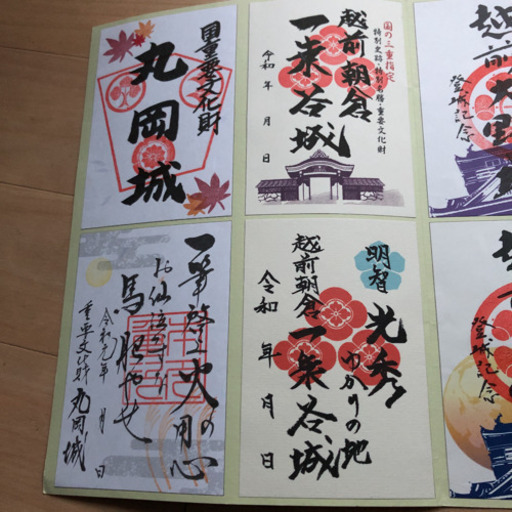 国重要文化財
丸岡城
国の三重指定
特別史跡・特別名勝・重要文化財
越前朝倉
一乗谷城
令和 年 月 日
越前
大野
登城記念
一筆啓上 火の用心
お仙泣かすな
馬肥やせ
令和元年 月 日
重要文化財 丸岡城
明智
光秀
ゆかりの地
越前朝倉
一乗谷城
令和 年 月 日
登城記念